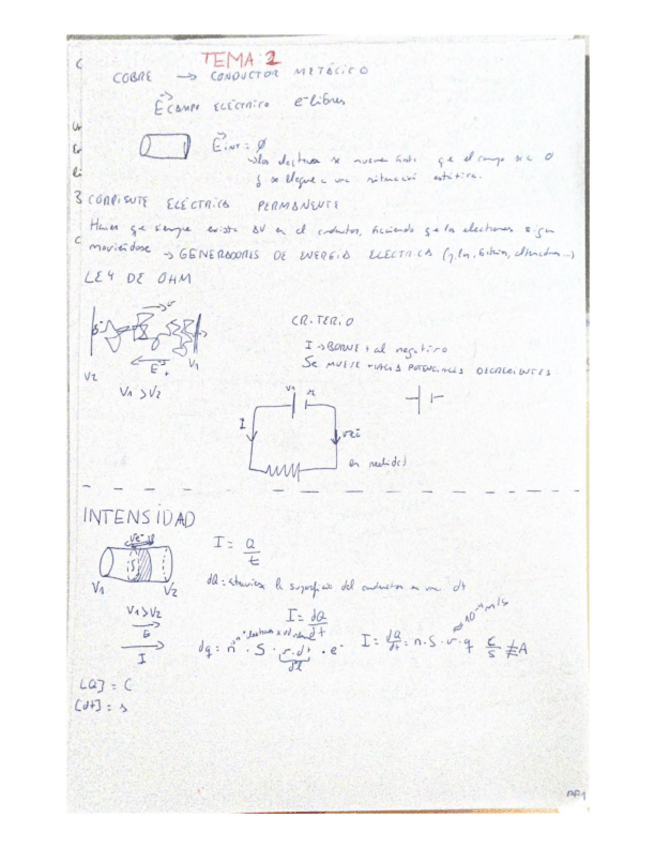 TEMA 2
COBRE → CONDUCTOR METÁLICO
E CAMPO ELÉCTRICO e- libres
E INT = Ø
→ los electrones se mueven hasta que el campo sea 0
y se llegue a una situación estática.
CORRIENTE ELÉCTRICA PERMANENTE
Hacer que siempre exista ΔV en el conductor, haciendo que los electrones sigan
moviéndose → GENERADORES DE ENERGÍA ELÉCTRICA (pilas, baterías, alternadores...)
LEY DE OHM
CRITERIO
I → BORNE + al negativo
SE MUEVE HACIA POTENCIALES DECRECIENTES
E
V2 V1
V1 > V2
I
en realidad
INTENSIDAD
I = Q/t
S
V1 V2
dQ = atraviesa la superficie del conductor en un dt
V1 > V2
I = dQ/dt
E
I
dq = n · S · v · dt · e-
dl
I = dQ/dt = n · S · v · q C/s ≠ A
[Q] = C
[dt] = s